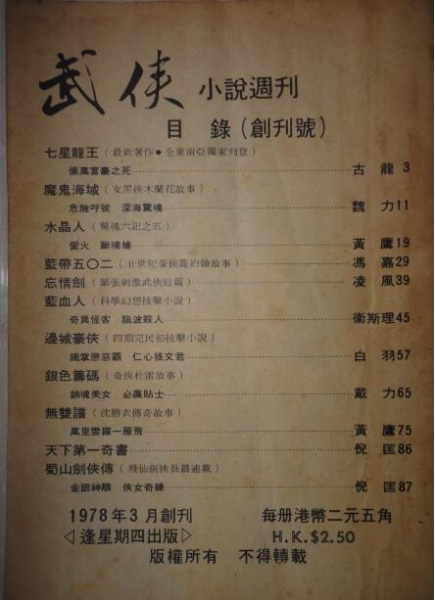 武俠 小說週刊
目 錄（創刊號）
七星龍王（最新著作•全東南亞獨家刊登）
億萬富豪之死 古 龍 3
魔鬼海域（女黑俠木蘭花故事）
危險呼號 深海驚魂 魏 力 11
水晶人（驚魂六記之五）
螢火 斷魂槍 黃 鷹 19
藍帶五〇二（廿世紀豪俠龍約翰故事） 馮 嘉 29
忘情劍（緊張刺激武俠短篇） 凌 風 39
藍血人（科學幻想技擊小說）
奇異怪客 腦波殺人 衞斯理 45
邊城豪俠（四期完民初技擊小說）
鐵掌懲惡霸 仁心拯文君 白 羽 57
銀色籌碼（奇俠杜雷故事）
銷魂美女 必贏貼士 戴 力 65
無雙譜（沈勝衣傳奇故事）
萬里雲羅一雁飛 黃 鷹 75
天下第一奇書 倪 匡 86
蜀山劍俠傳（飛仙劍俠長篇連載）
金眼神鵰 俠女奇緣 倪 匡 87
1978年3月創刊 每册港幣二元五角
◁逢星期四出版▷ H.K.$2.50
版權所有 不得轉載